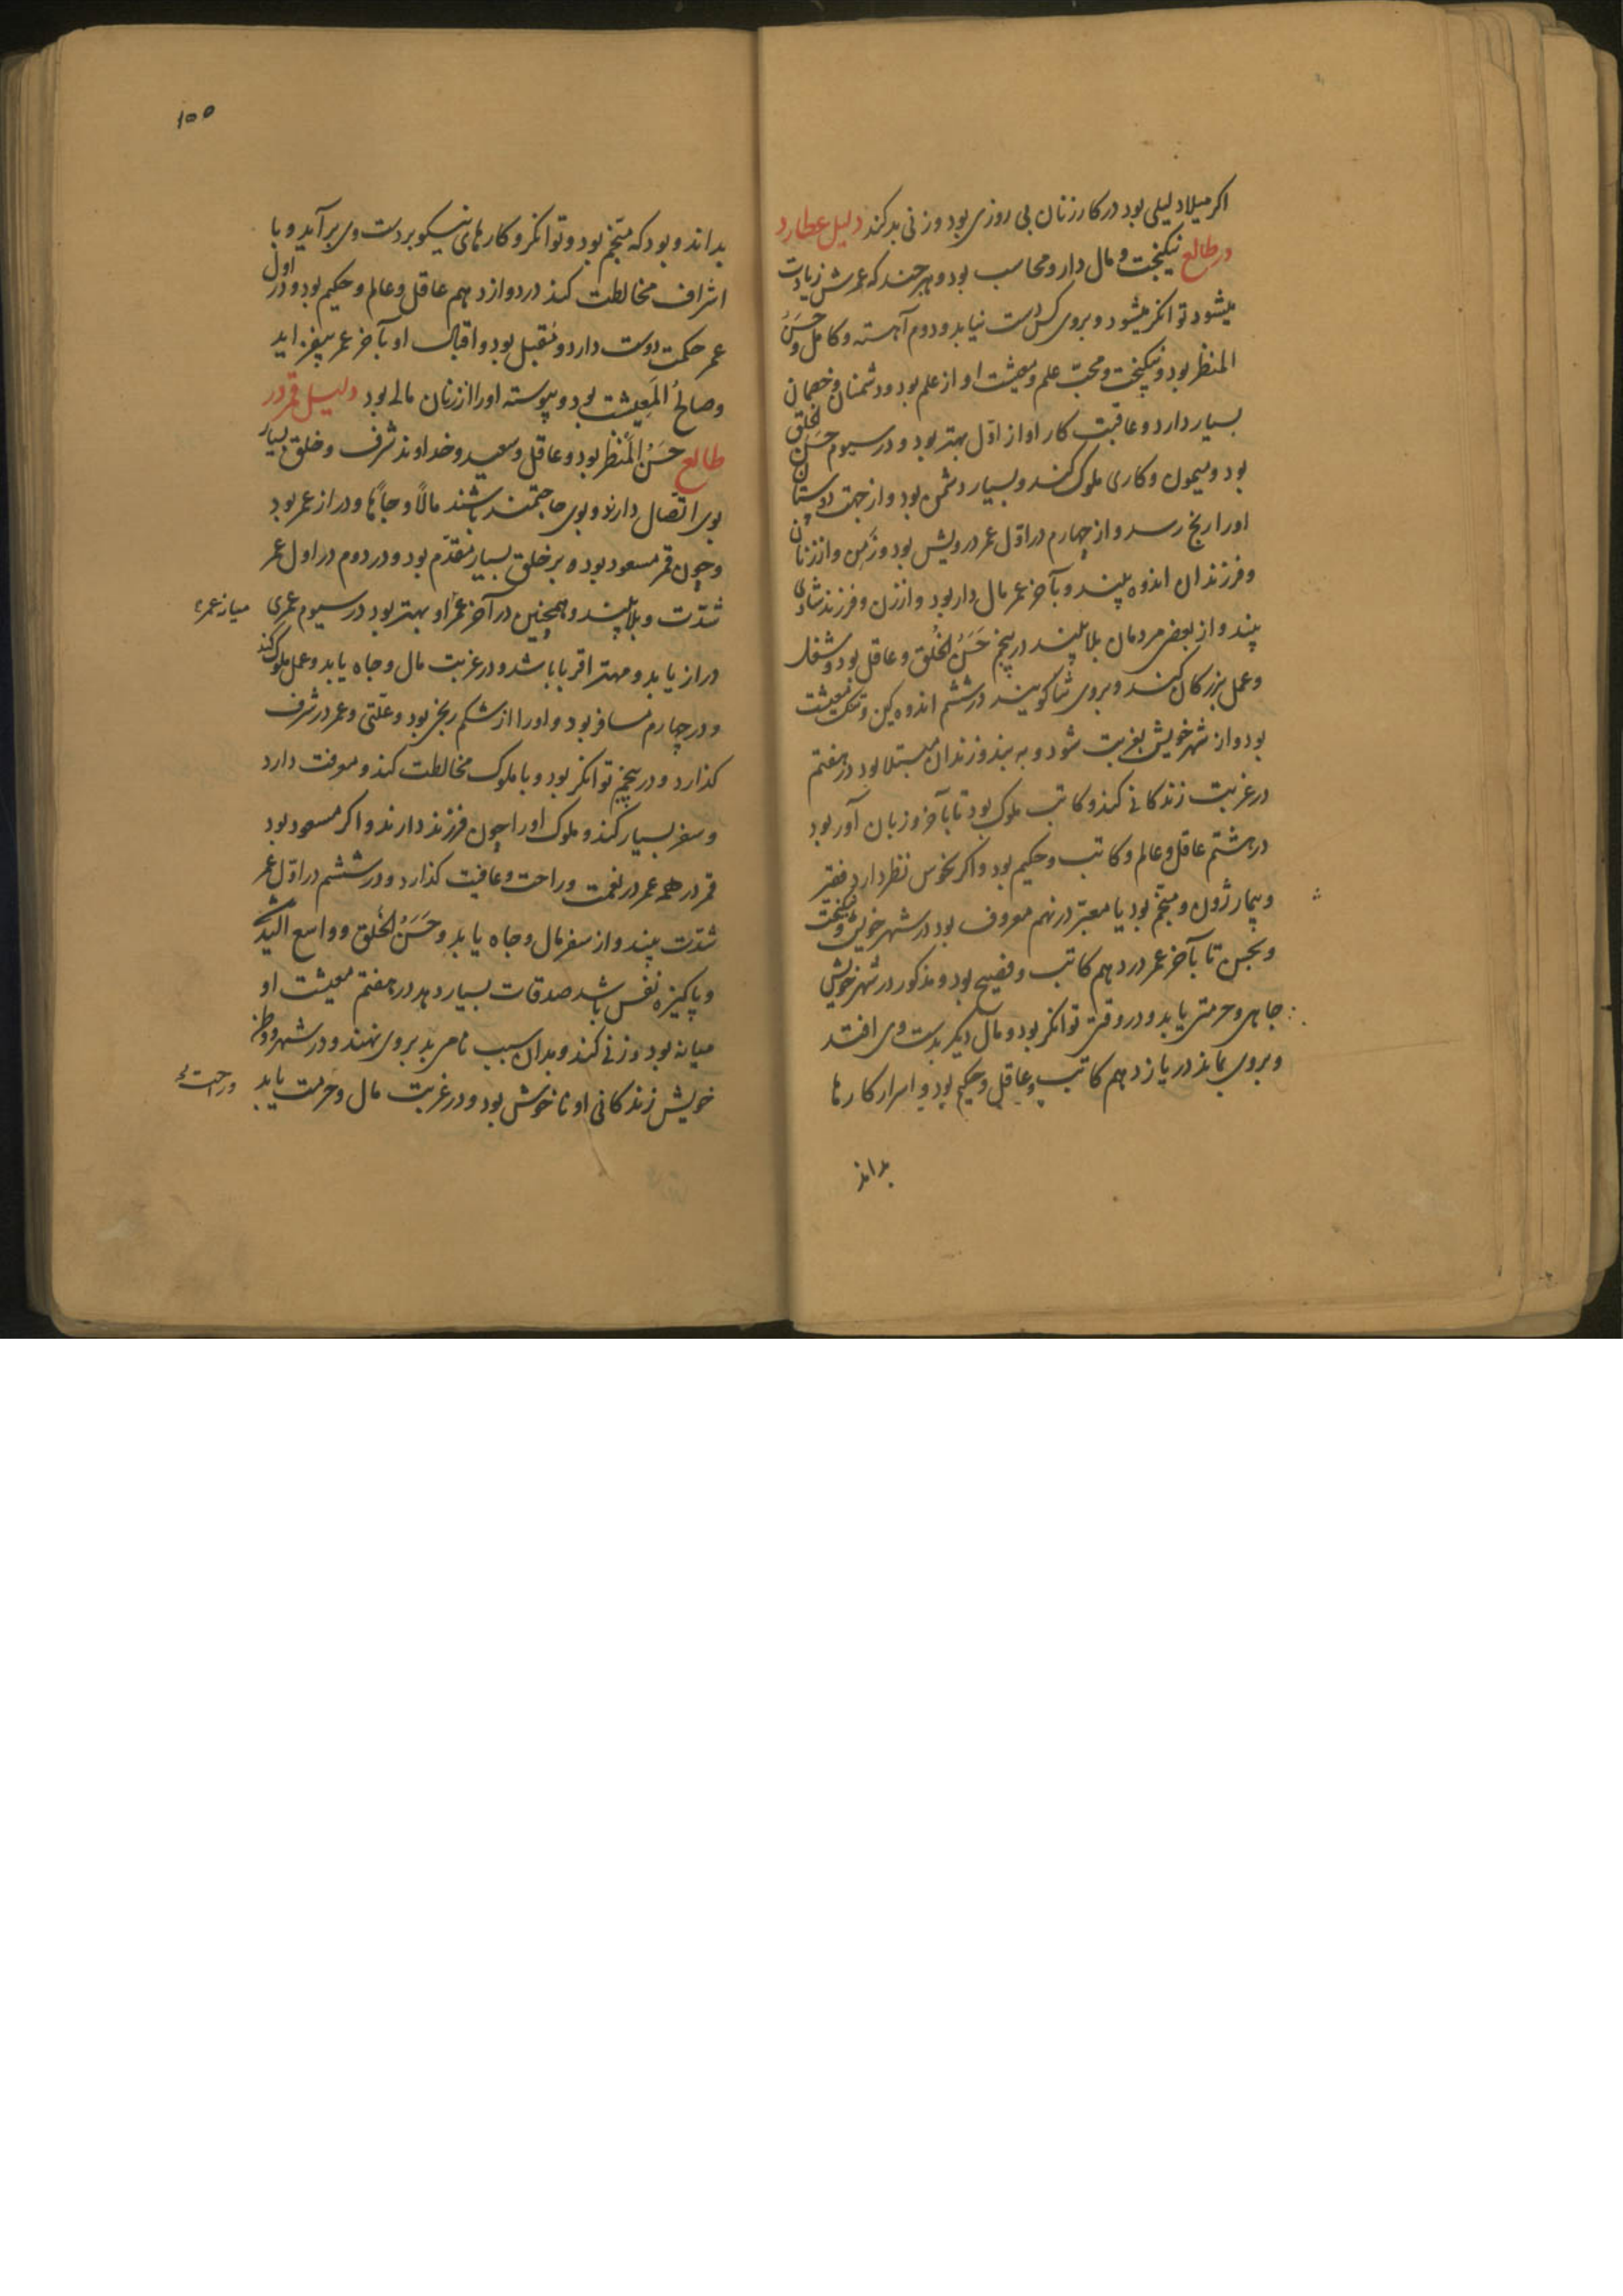 اکر میلاد لیلی بود در کار زنان بی روزی بود و زنی بد کند دلیل عطارد
در طالع نیکبخت و مال دار و محاسب بود و هر چند که عمرش زیادت
میشود توانکر میشود و بروی کس دست نیابد و دوم آهسته و کامل و حَسَنُ
المنظر بود و نیکبخت و محبّ علم و معیشت او از علم بود و دشمنان و خصمان
بسیار دارد و عاقبت کار او از اوّل بهتر بود و در سیوم حسن الخلق
بود و میمون و کاری ملوک کند و بسیار دشمن بود و از جهت دوستان
او را رنج رسد و از چهارم در اوّل عمر درویش بود و زَمِن و از زنان
و فرزندان اندوه بیند و بآخر عمر مال دار بود و از زن و فرزند شادی
بیند و از بعضی مردمان بلا بیند در پنجم حَسَنُ الخُلق و عاقل بود و شغل
و عمل بزرکان کند و بروی ثنا کویند در ششم اندوه کین و تنک معیشت
بود و از شهر خویش بغربت شود و به بند و زندان مبتلا بود در هفتم
در غربت زندکانی کند و کاتب ملوک بود تا بآخر و زبان آور بود
در هشتم عاقل و عالم و کاتب و حکیم بود و اکر بنحوس نظر دارد فقر
و بیمار بود و منجّم بود یا معبّر در نهم معروف بود در شهر خویش و نیکبخت
و تا بآخر عمر در دهم کاتب و فصیح بود و مذکور در شهر خویش
جاهی و حرمتی یابد و در وقتی توانکر بود و مال دیکر بدست وی افتد
و بروی بماند در یازدهم کاتب و عاقل و حکیم بود و اسرار کارها
بداند
۱۵۵
بداند و بود که منجّم بود و توانکر و کارهای نیکو بر دست وی برآید و با
اشراف مخالطت کند در دوازدهم عاقل و عالم و حکیم بود و در اول
عمر حکمت دوست دارد و مُقبل بود و اقبال او بآخر عمر بیفزاید
و صالحُ المَعِیشت بود و پیوسته او را از زنان مال بود دلیل قمر در
طالع حَسَنُ المَنظر بود و عاقل و سعید و خداوند شرف و خلق بسیار
بوی اتصال دارند و بوی حاجتمند باشند مالاً و جاهاً و دراز عمر بود
و چون قمر مسعود بود بر خلق بسیار مقدّم بود و در دوم در اول عمر
شدّت و بلا بیند و همچنین در آخر عمر او بهتر بود در سیوم عمری
دراز یابد و مهتر اقربا باشد و در غربت مال و جاه یابد و عمل ملوک کند
و در چهارم مسافر بود و او را از شکم رنج بود و علّتی و عمر در شرف
کذارد و در پنجم توانکر بود و با ملوک مخالطت کند و معرفت دارد
و سفر بسیار کند و ملوک او را چون فرزند دارند و اکر مسعود بود
قمر در همه عمر در نعمت و راحت و عافیت کذارد و در ششم در اوّل عمر
شدّت بیند و از سفر مال و جاه یابد و حَسَنُ الخُلق و واسع الید
و پاکیزه نفس باشد صدقات بسیار دهد در هفتم معیشت او
میانه بود و زنی کند و بدان سبب نامی بد بروی نهند و در شهر و وطن
خویش زندکانی او ناخوش بود و در غربت مال و حرمت یابد